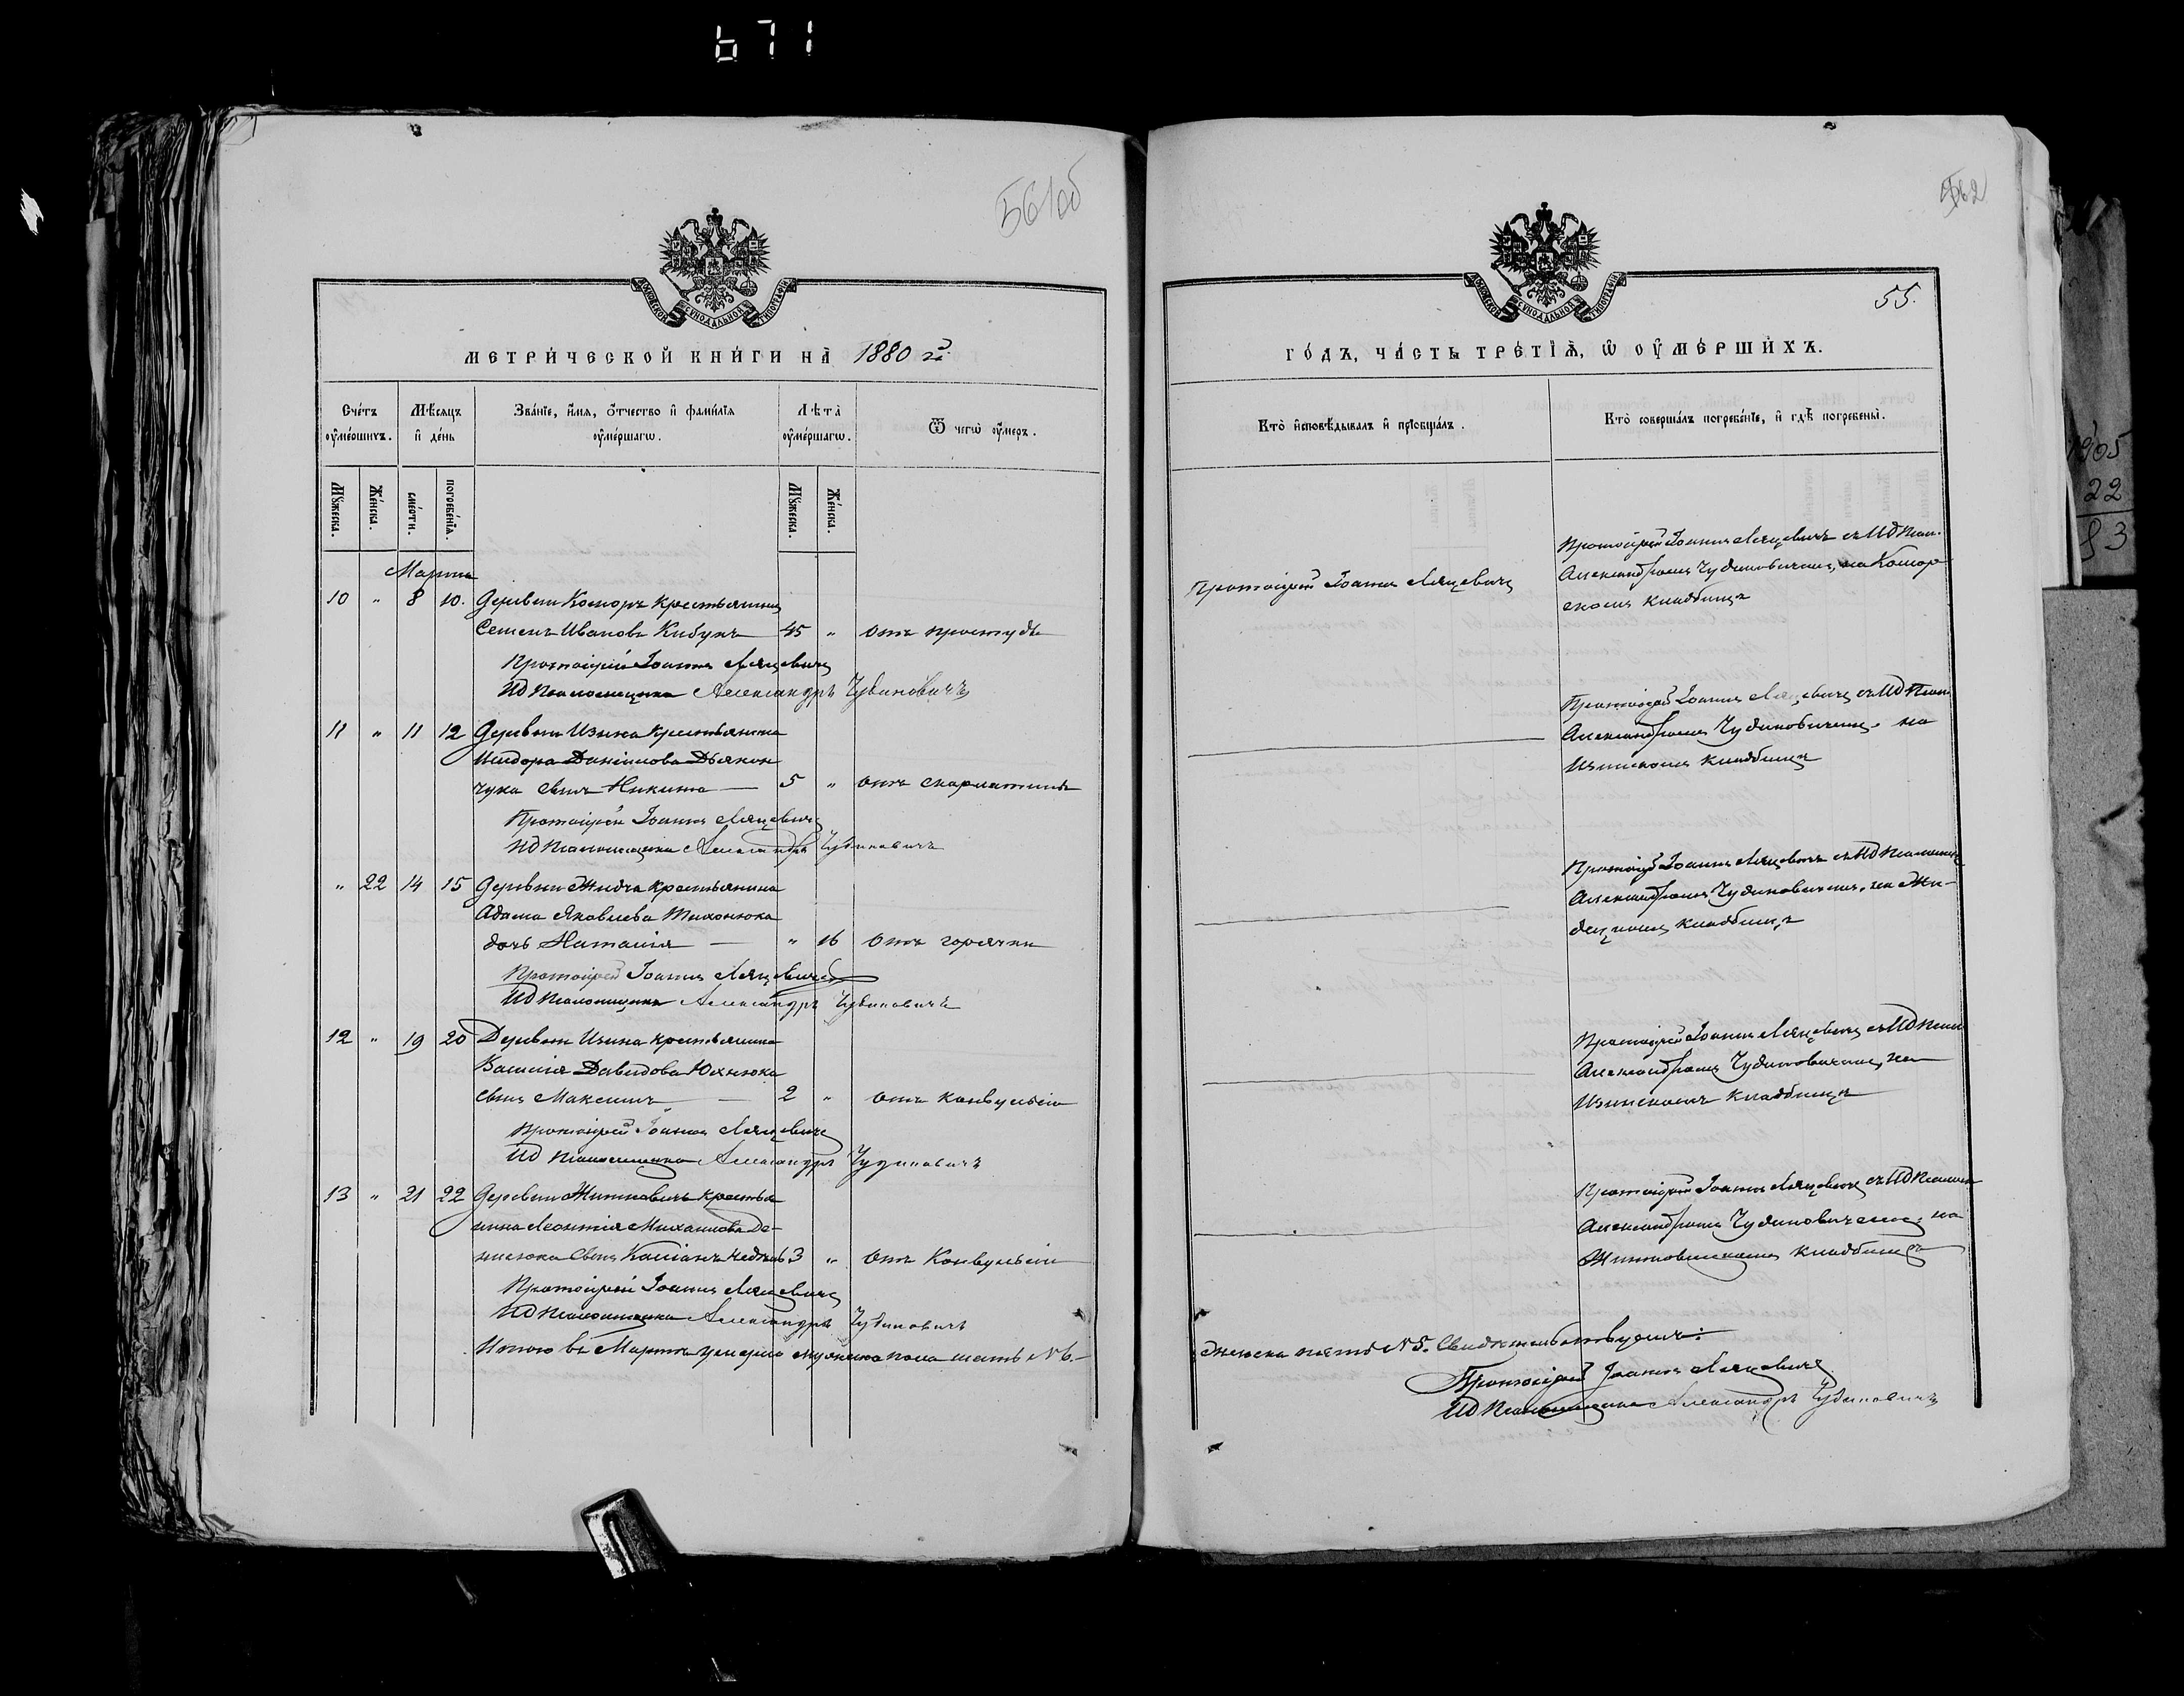 671
561об
МОСКОВСКОЙ СѴНОДАЛЬНОЙ ТИПОГРАФІИ
МЕТРИ́ЧЕСКОЙ КНИ́ГИ НА̀ 1880 й
Сче́тъ ᲂу҆ме́ршихъ.
Мѣ́сяцъ и҆ де́нь
Зва́нїе, и҆́мѧ, ѻ҆́тчество и҆ фамилїѧ ᲂу҆ме́ршагѡ.
Лѣта̀ ᲂу҆ме́ршагѡ.
Ѿ чегѡ̀ ᲂу҆́меръ.
Мꙋ́жеска.
Же́нска.
сме́рти.
погребе́нїѧ.
Мꙋ́жеска.
Же́нска.
Марта
10 " 8 10. Деревни Коморъ крестьянинъ
Семенъ Ивановъ Кибукъ 45 " отъ простуды
Протоіерей Іоаннъ Ляцевичъ
ИД Псаломщика Александръ Чудиновичъ
11 " 11 12 Деревни Изина крестьянина
Исидора Даніилова Дьякон
чука сынъ Никита — 5 " отъ скарлатины
Протоіерей Іоаннъ Ляцевичъ
ИД Псаломщика Александръ Чудиновичъ
" 22 14 15 Деревни Жидча крестьянина
Адама Яковлева Тихонюка
дочь Наталія — " 16 отъ горячки
Протоіерей Іоаннъ Ляцевичъ
ИД Псаломщика Александръ Чудиновичъ
12 " 19 20 Деревни Изина крестьянина
Василія Давидова Юхнюка
сынъ Максимъ — 2 " отъ конвульсіи
Протоіерей Іоаннъ Ляцевичъ
ИД Псаломщика Александръ Чудиновичъ
13 " 21 22 Деревни Житковичъ крестья
нина Леонтія Михаилова Де-
нисюка сынъ Касіанъ недѣль 3 " отъ Конвульсіи
Протоіерей Іоаннъ Ляцевичъ
ИД Псаломщика Александръ Чудиновичъ
Итого въ Мартѣ умерло мужеска пола шесть №6.
562
55.
МОСКОВСКОЙ СѴНОДАЛЬНОЙ ТИПОГРАФІИ
ГО́ДЪ, ЧА́СТЬ ТРЕ́ТЇѦ, Ѡ҆ ОУ҆МЕ́РШИХЪ.
Кто̀ и҆сповѣ́дывалъ и҆ прїобща́лъ.
Кто̀ соверша́лъ погребе́нїе, и҆ гдѣ̀ погребены̀.
Протоіерей Іоаннъ Ляцевичъ
Протоіерей Іоаннъ Ляцевичъ съ ИД Псал.
Александромъ Чудиновичемъ, на Комор
скомъ кладбищѣ
Протоіерей Іоаннъ Ляцевичъ съ ИД Псал.
Александромъ Чудиновичемъ, на
Изинскомъ кладбищѣ
Протоіерей Іоаннъ Ляцевичъ съ ИД Псаломщ.
Александромъ Чудиновичемъ, на Жи-
децкомъ кладбищѣ
Протоіерей Іоаннъ Ляцевичъ съ ИД Псал
Александромъ Чудиновичемъ, на
Изинскомъ кладбищѣ
Протоіерей Іоаннъ Ляцевичъ съ ИД Псалом
Александромъ Чудиновичемъ, на
Житковискомъ кладбищѣ
женска пять №5. Свидѣтельствуемъ:
Протоіерей Іоаннъ Ляцевичъ
ИД Псаломщика Александръ Чудиновичъ
1905
22